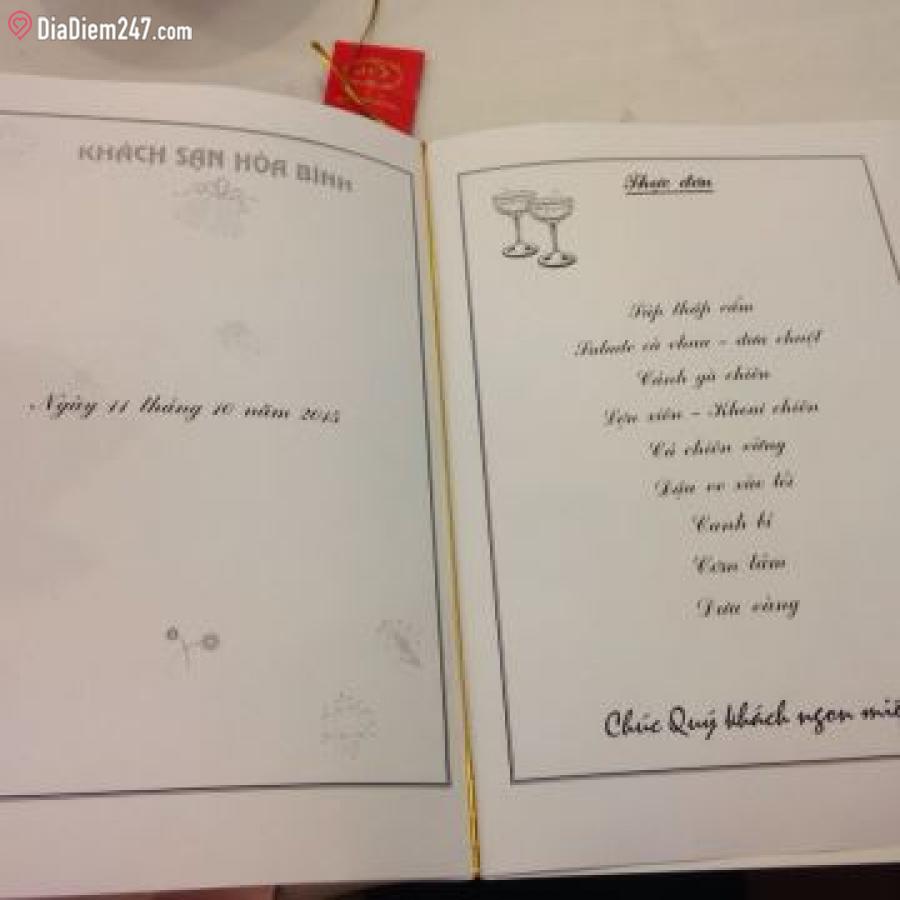 DiaDiem247.com
KHÁCH SẠN HÒA BÌNH
Ngày 11 tháng 10 năm 2015
Thực đơn
Súp thập cẩm
Salade cà chua - dưa chuột
Cánh gà chiên
Lợn xiên - Khoai chiên
Cá chiên vừng
Đậu ve xào tỏi
Canh bí
Cơm tám
Dưa vàng
Chúc Quý khách ngon